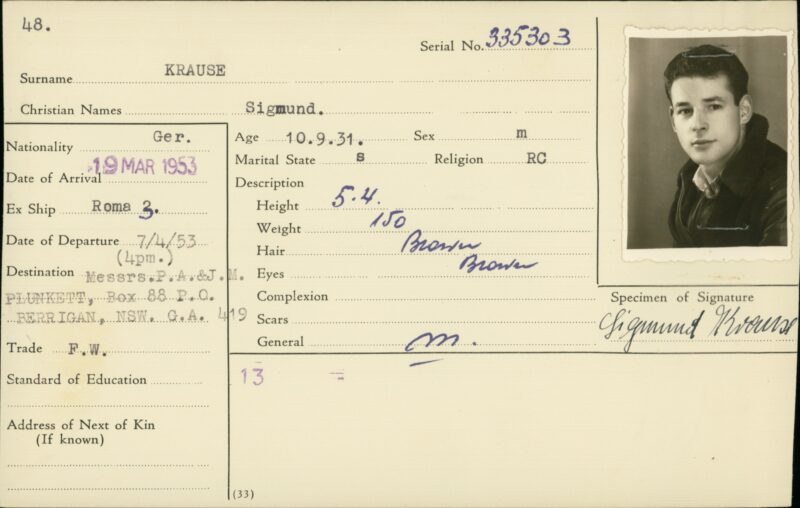 48.
Serial No. 335303
Surname KRAUSE
Christian Names Sigmund.
Nationality Ger.
Date of Arrival 19 MAR 1953
Ex Ship Roma 3.
Date of Departure 7/4/53
(4pm.)
Destination Messrs.P.A.&J.M.
PLUNKETT, Box 88 P.O.
BERRIGAN, NSW. G.A. 419
Trade F.W.
Standard of Education
Address of Next of Kin
(If known)
Age 10.9.31. Sex m
Marital State s Religion RC
Description
Height 5.4.
Weight 150
Hair Brown
Eyes Brown
Complexion
Scars
General m.
Specimen of Signature
Sigmund Krause
13 =
(33)